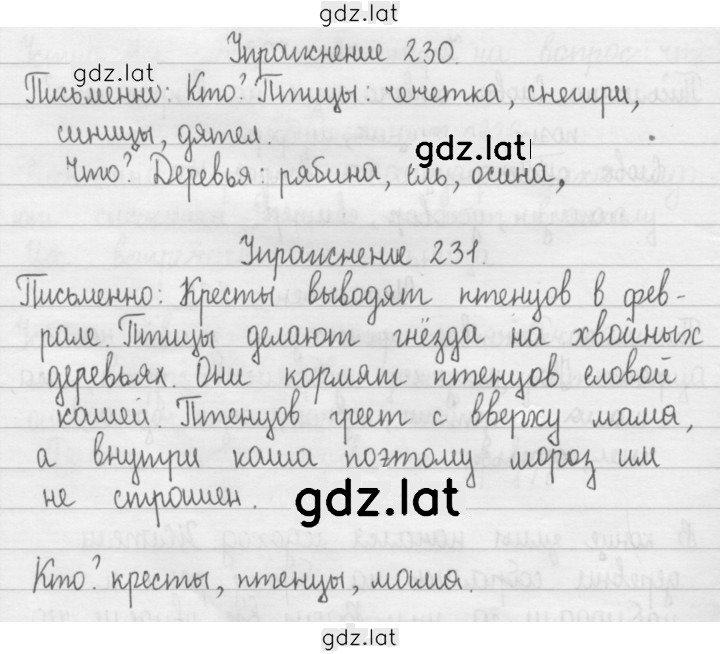 gdz.lat
Упражнение 230.
gdz.lat
Письменно: Кто? Птицы: чечетка, снегири,
синицы, дятел.
gdz.lat
Что? Деревья: рябина, ель, осина,
Упражнение 231.
Письменно: Кресты выводят птенцов в фев-
рале. Птицы делают гнёзда на хвойных
деревьях. Они кормят птенцов еловой
кашей. Птенцов греет с вверху мама,
а внутри каша поэтому мороз им
не страшен.
gdz.lat
Кто? кресты, птенцы, мама.
gdz.lat